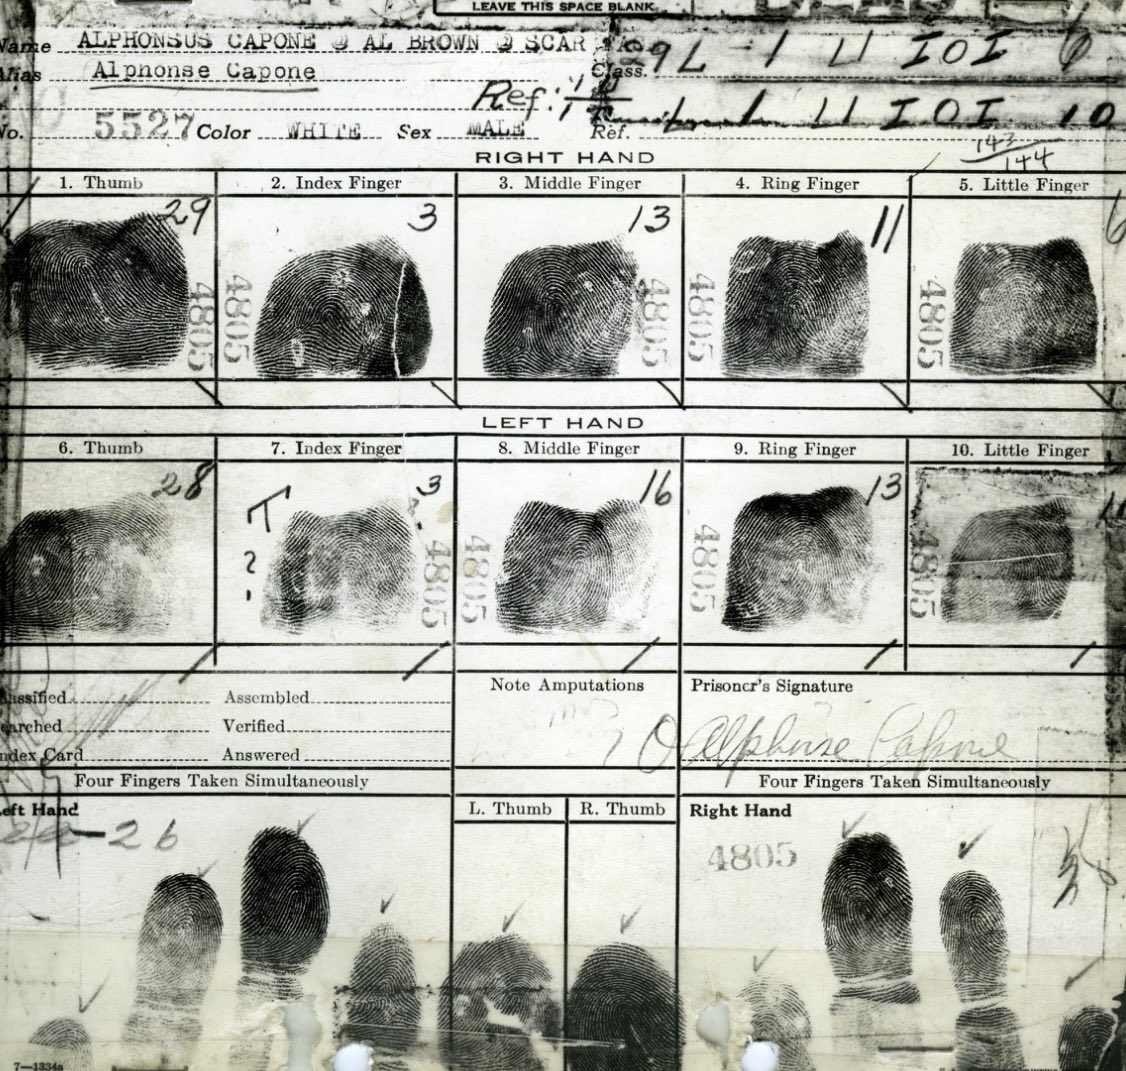 LEAVE THIS SPACE BLANK
Name ALPHONSUS CAPONE @ AL BROWN @ SCAR
Class. 29 L 1 U IOI 6
Alias Alphonse Capone
Ref: L 1 U IOI 10
No. 5527 Color WHITE Sex MALE Ref.
143
144
RIGHT HAND
1. Thumb 2. Index Finger 3. Middle Finger 4. Ring Finger 5. Little Finger
29 3 13 11
4805 4805 4805 4805 4805
LEFT HAND
6. Thumb 7. Index Finger 8. Middle Finger 9. Ring Finger 10. Little Finger
28 T ? 3 16 13 11
4805 4805 4805 4805
Classified Assembled
Note Amputations Prisoner's Signature
Searched Verified
Index Card Answered
Alphonse Capone
Four Fingers Taken Simultaneously Four Fingers Taken Simultaneously
Left Hand L. Thumb R. Thumb Right Hand
26
4805
7—1334a